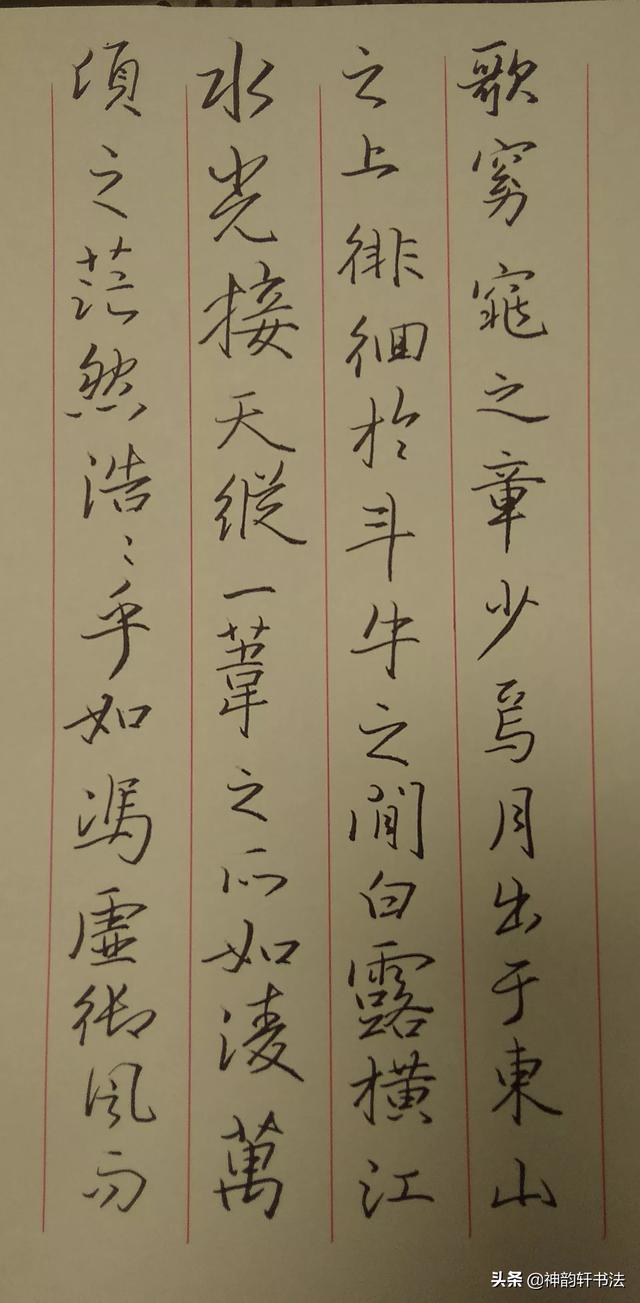 歌窈窕之章少焉月出于東山
之上徘徊於斗牛之間白露橫江
水光接天縱一葦之所如淩萬
頃之茫然浩〻乎如馮虛御風而
头条 @神韵轩书法